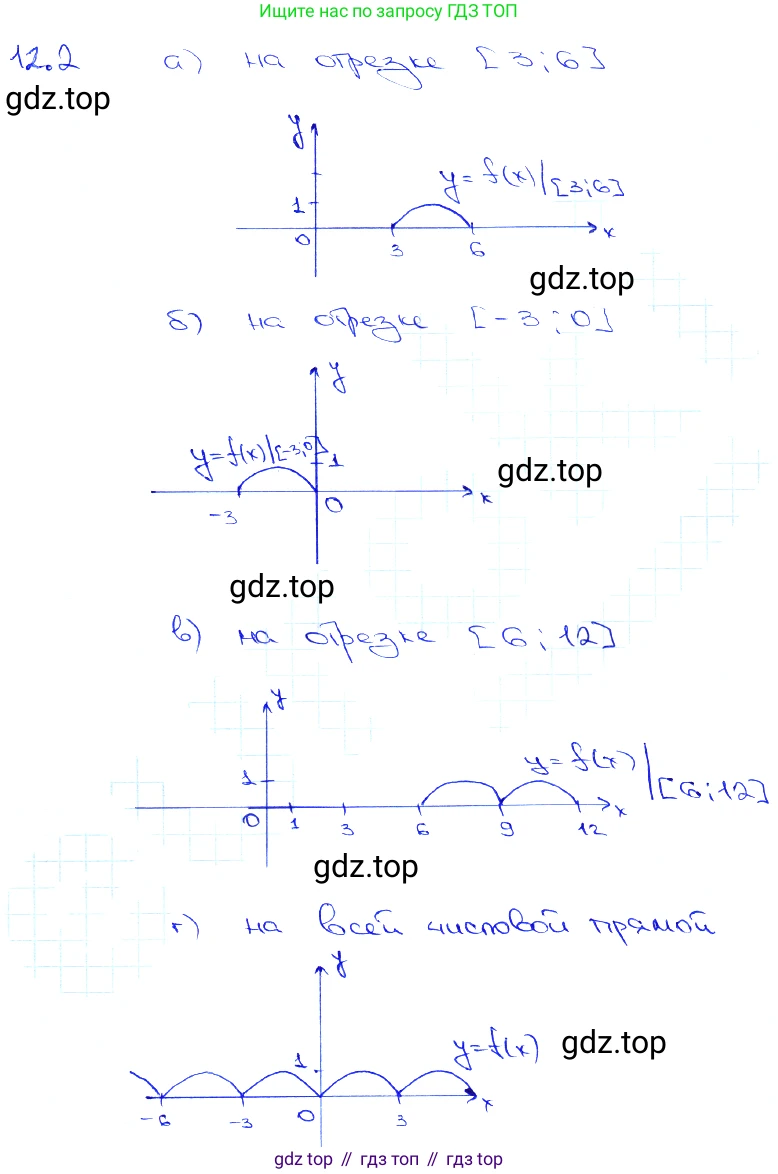 Ищите нас по запросу ГДЗ ТОП
12.2 а) на отрезке [3;6]
gdz.top
y
y=f(x)|[3;6]
1
0 3 6 x
gdz.top
б) на отрезке [-3;0]
y
y=f(x)|[-3;0]
1
gdz.top
-3 0 x
gdz.top
в) на отрезке [6;12]
y
y=f(x)|[6;12]
1
0 1 3 6 9 12 x
gdz.top
г) на всей числовой прямой
y
y=f(x)
gdz.top
1
-6 -3 0 3 x
gdz top // гдз топ // gdz top